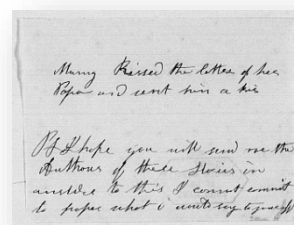 Mamy Kissed the letter of her
Papa and sent him a kiss
PS I hope you will send me the
Authors of these Stories in
answer to this I cannot commit
to paper what i want say to